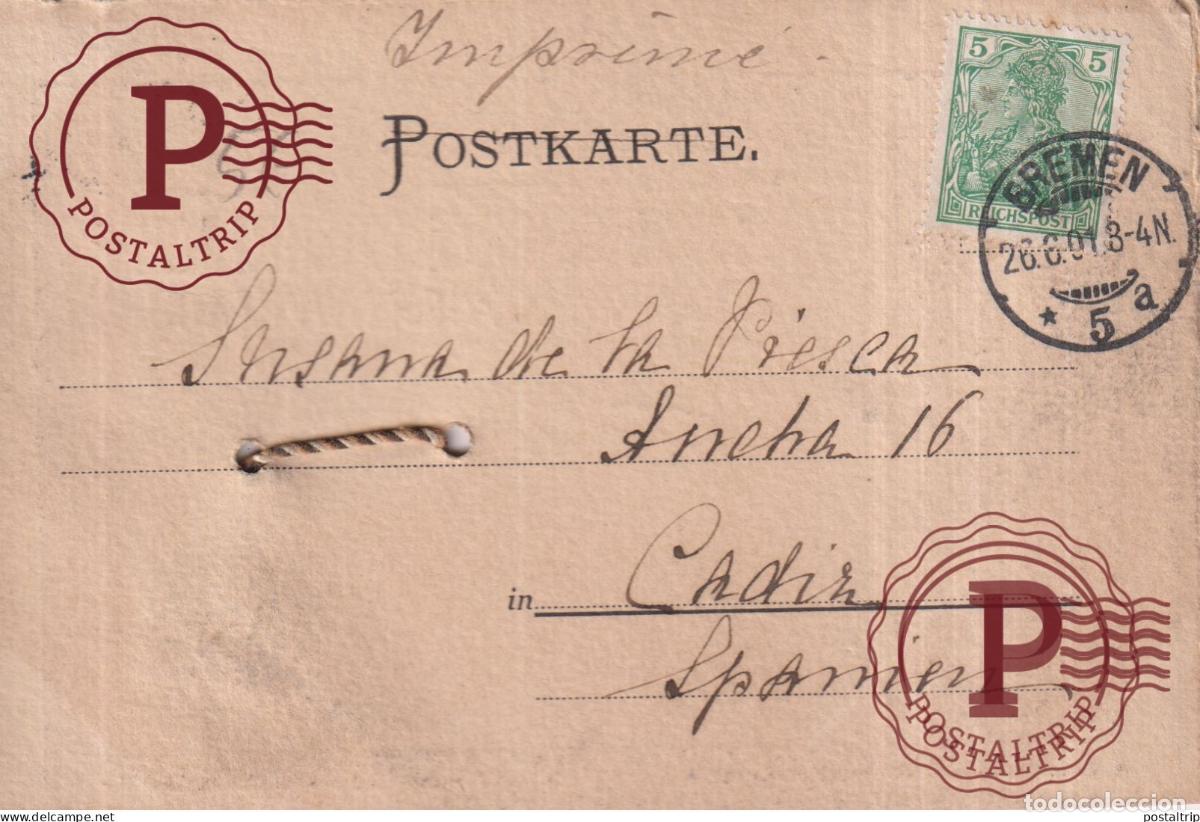 Imprimé.
POSTKARTE.
5 5
REICHSPOST
BREMEN
26.6.01.3-4N.
* 5 a
P
POSTALTRIP
Susana de la Viesca
Ancha 16
in Cadiz
Spanien
P
POSTALTRIP
POSTALTRIP
todocoleccion
www.todocoleccion.net
postaltrip